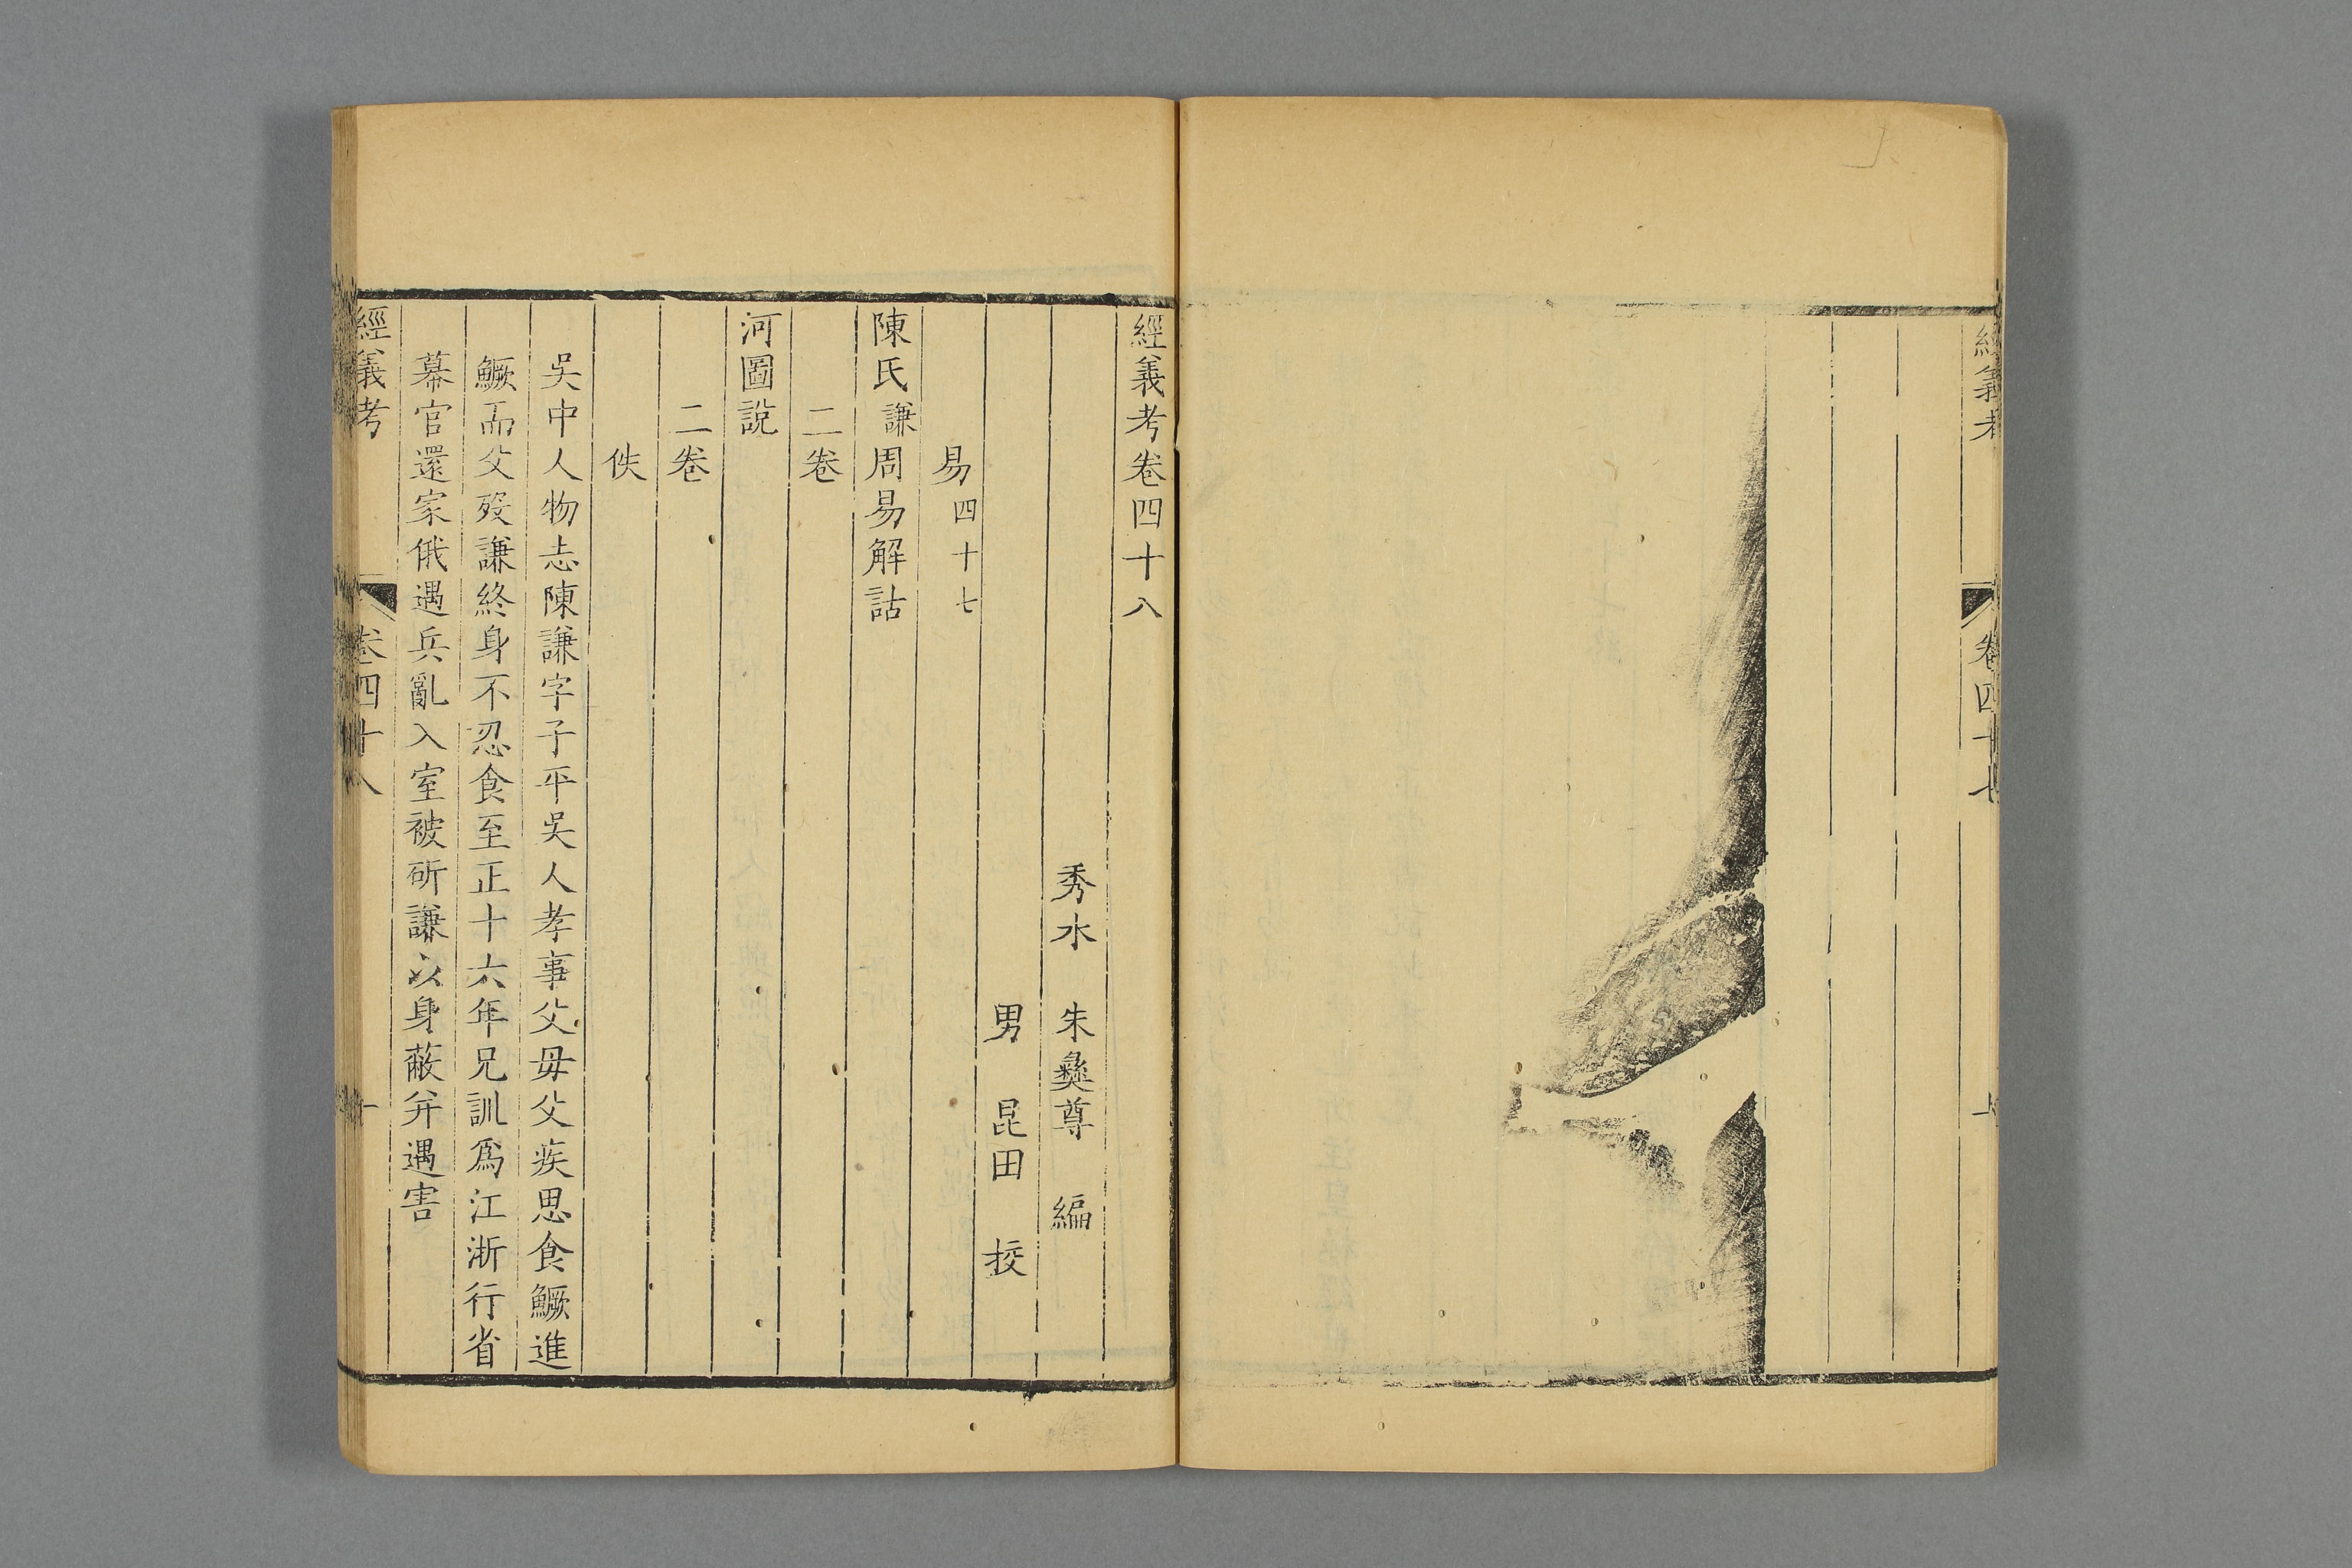 經義考
卷四十七
經義考卷四十八
秀水 朱彝尊 編
男 昆田 挍
易四十七
陳氏謙周易解詁
二卷
河圖說
二卷
佚
吳中人物志陳謙字子平吳人孝事父母父疾思食鱖進
鱖而父歿謙終身不忍食至正十六年兄訓爲江浙行省
幕官還家俄遇兵亂入室被斫謙以身蔽并遇害
經義考
卷四十八
一